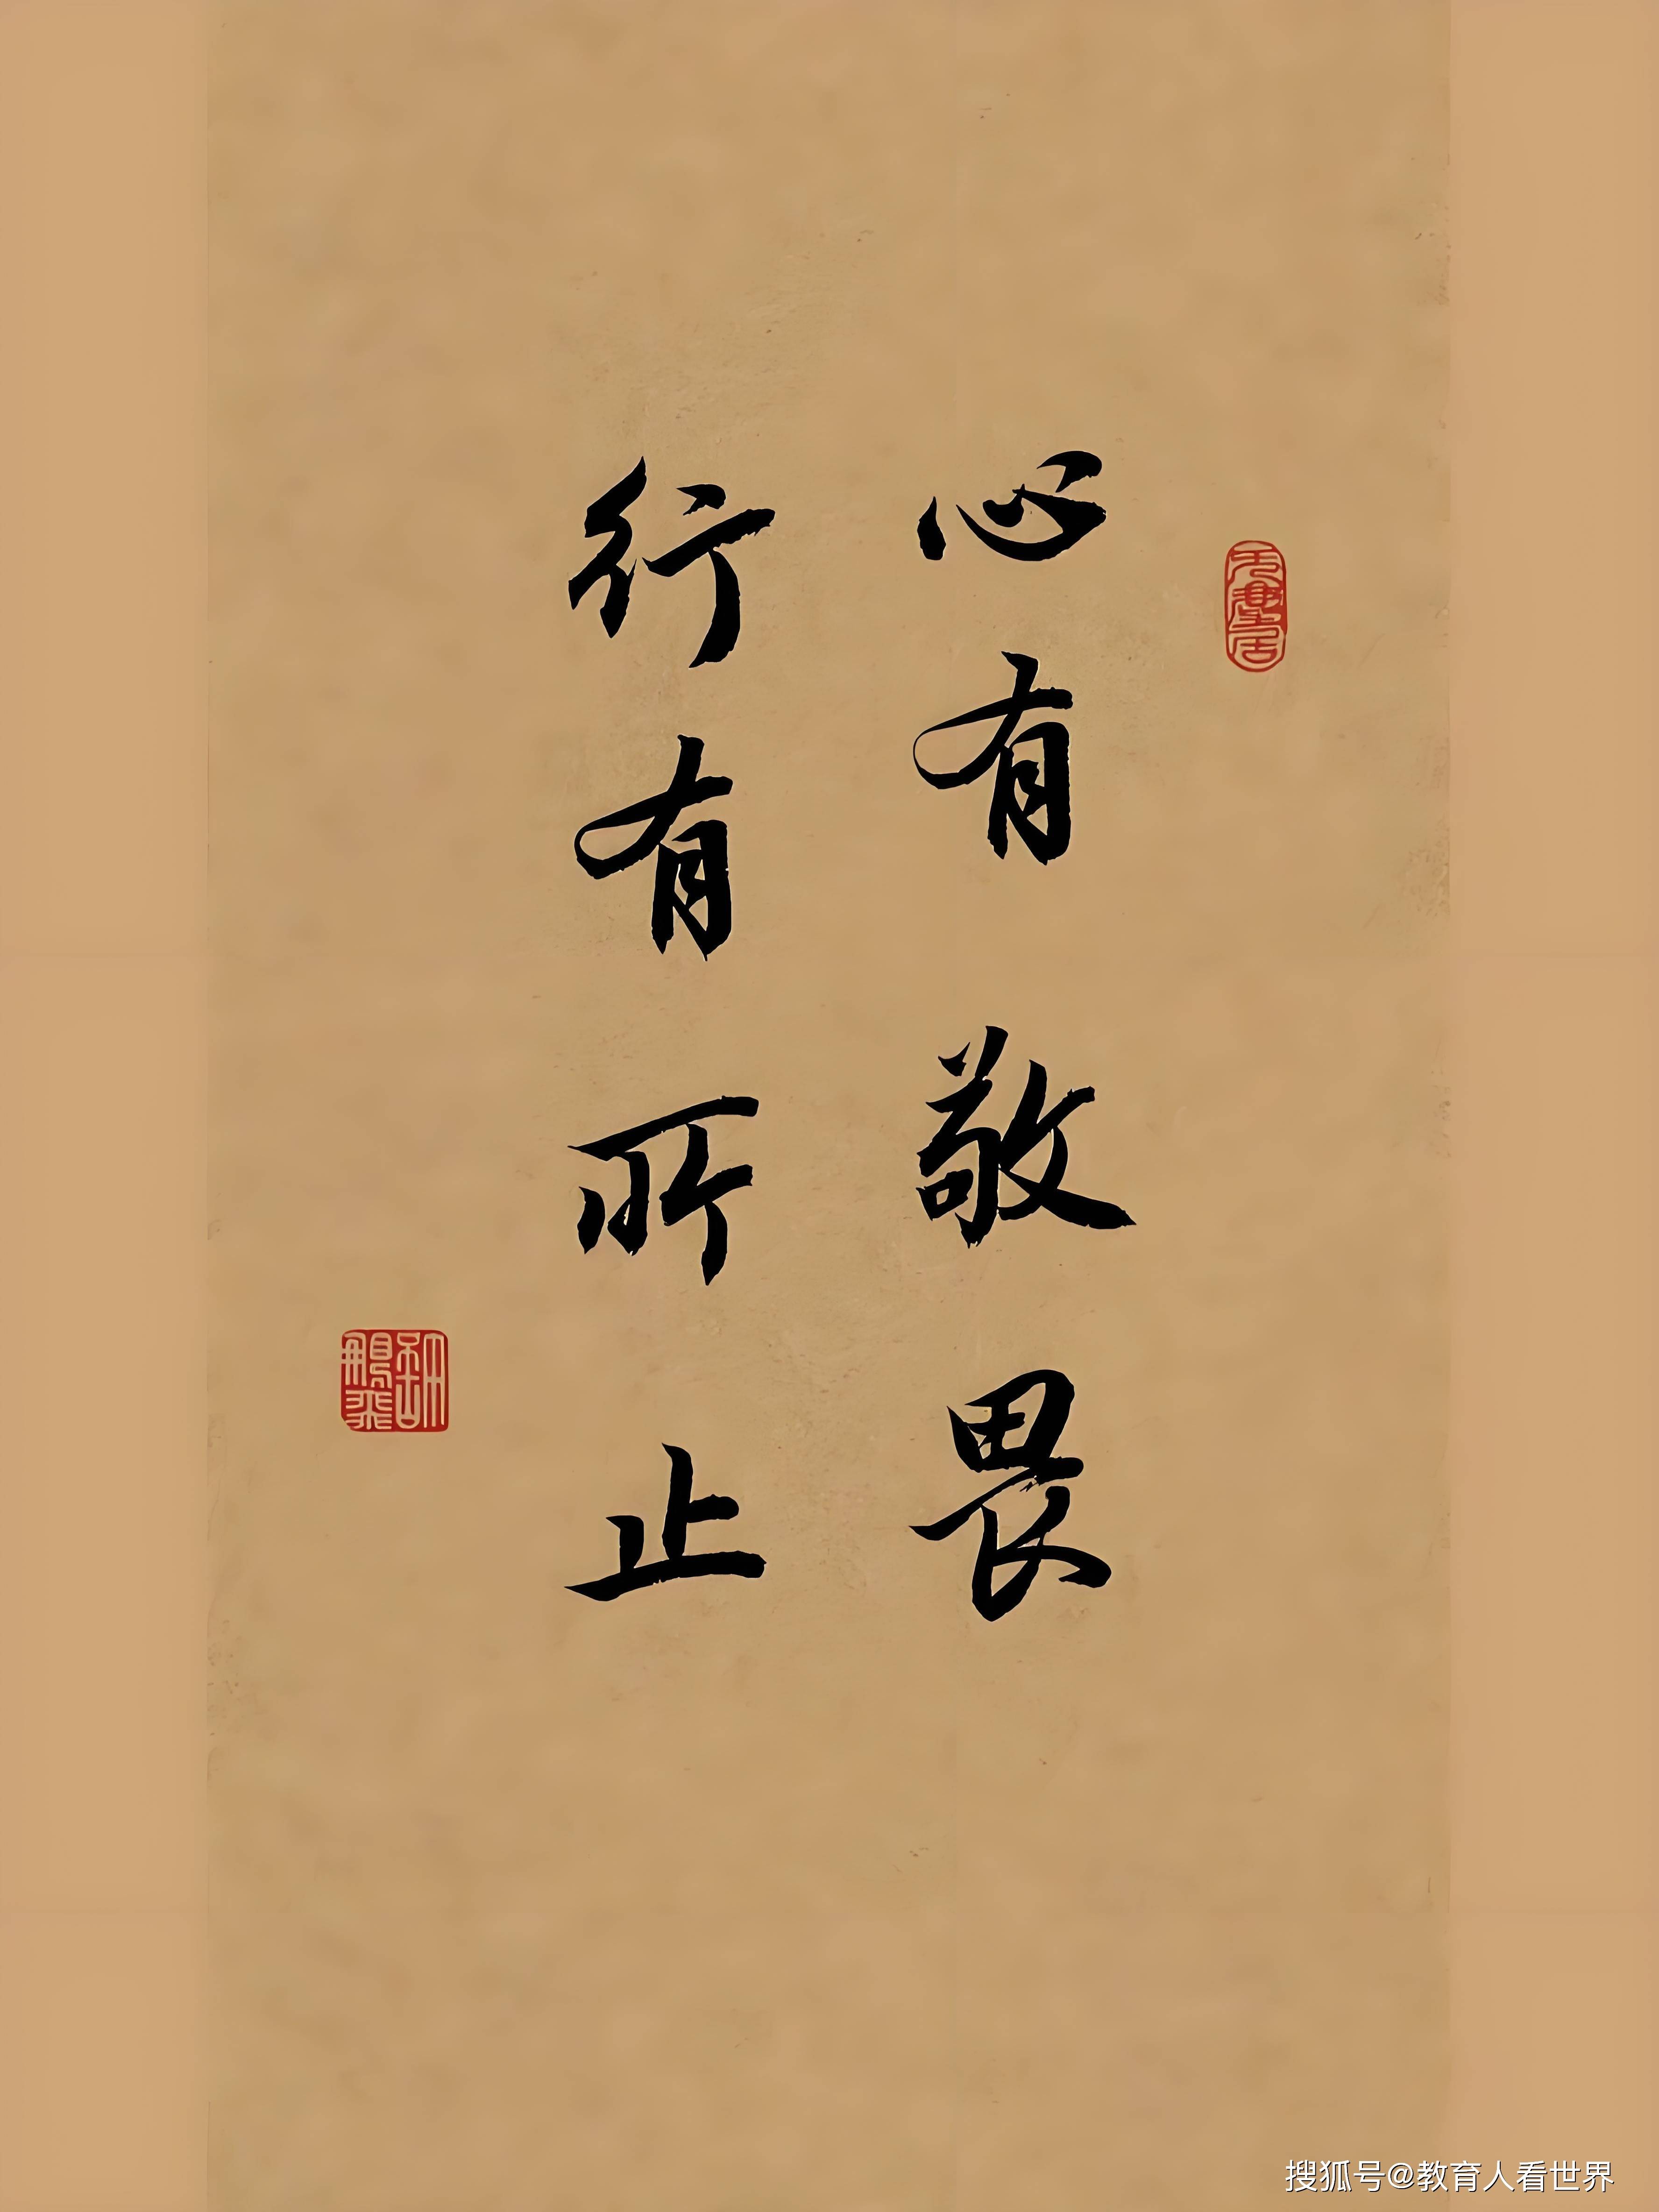 心有敬畏
行有所止
搜狐号@教育人看世界